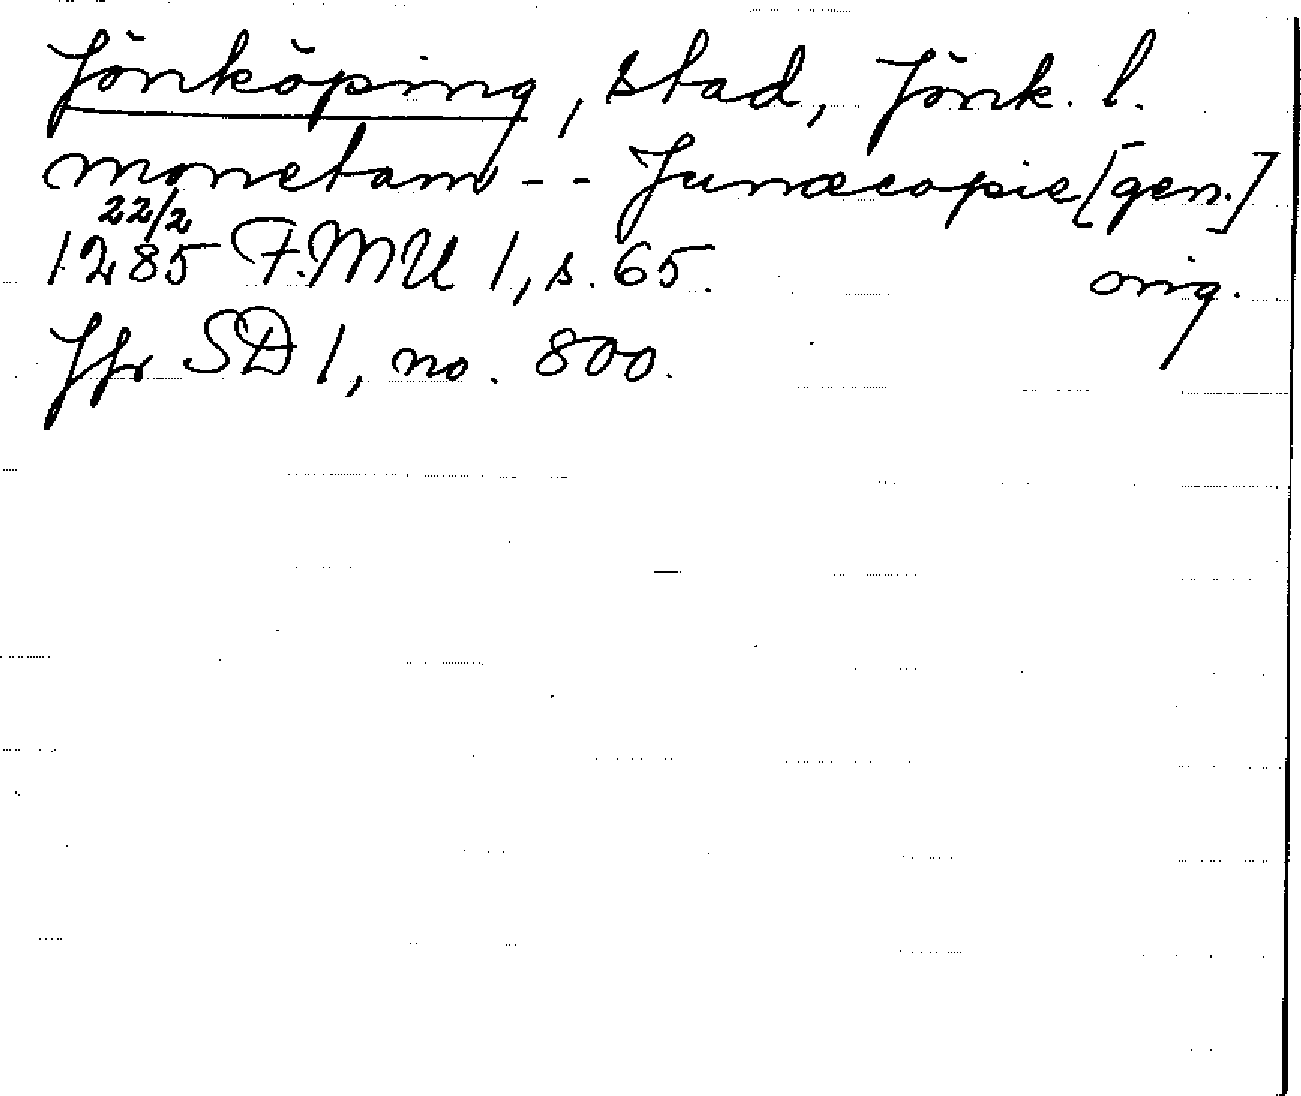 Jönköping, stad, Jönk. l.
monetam - - Junæcopie [gen.]
22/2
1285 F.M.U 1, s. 65. orig.
Jfr SD 1, no. 800.